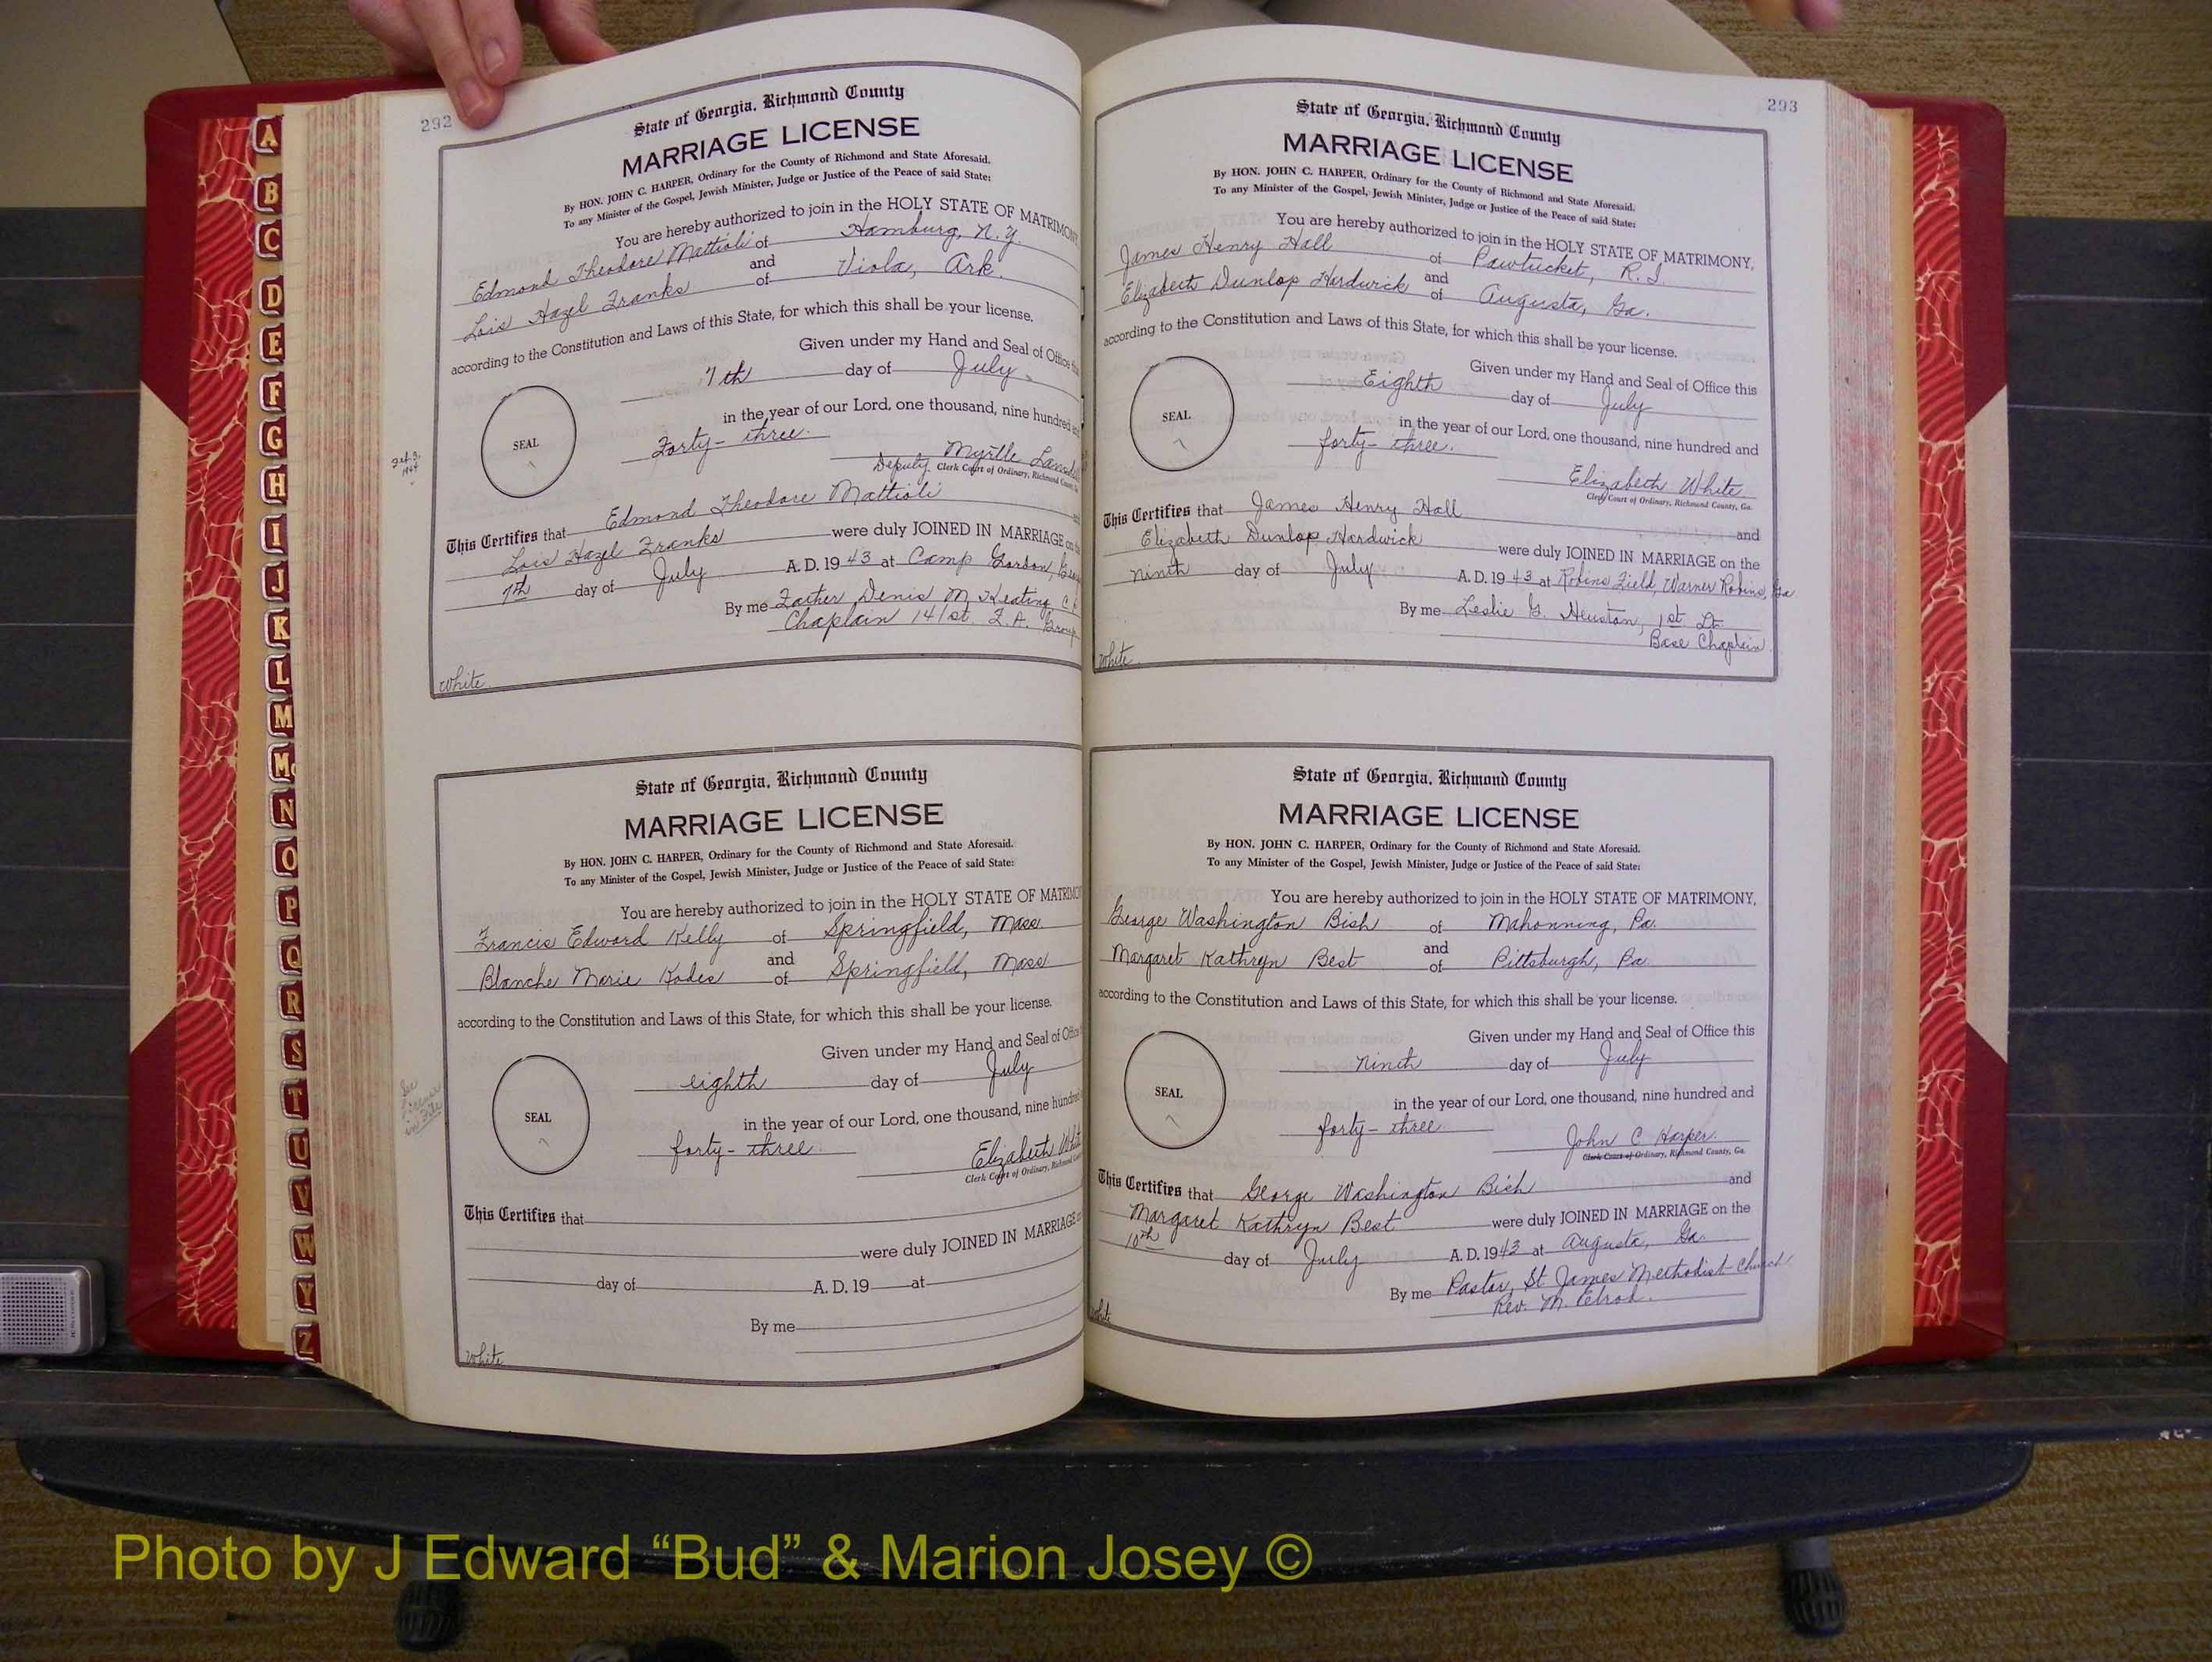 A
B
C
D
E
F
G
H
I
J
K
L
M
Mc
N
O
P
Q
R
S
T
U
V
W
Y
Z
292
State of Georgia, Richmond County
MARRIAGE LICENSE
By HON. JOHN C. HARPER, Ordinary for the County of Richmond and State Aforesaid.
To any Minister of the Gospel, Jewish Minister, Judge or Justice of the Peace of said State:
You are hereby authorized to join in the HOLY STATE OF MATRIMONY,
Edmond Theodore Mattioli of Hamburg, N.Y.
and
Lois Hazel Franks of Viola, Ark.
according to the Constitution and Laws of this State, for which this shall be your license.
Given under my Hand and Seal of Office
7th day of July
SEAL
in the year of our Lord, one thousand, nine hundred
Forty-three.
Myrtle
Deputy Clerk Court of Ordinary, Richmond County
This Certifies that Edmond Theodore Mattioli
Lois Hazel Franks were duly JOINED IN MARRIAGE on
7th day of July A. D. 19 43 at Camp Gordon,
By me Father Denis M. Keating
Chaplain 141st F.A. Group
White
State of Georgia, Richmond County
MARRIAGE LICENSE
By HON. JOHN C. HARPER, Ordinary for the County of Richmond and State Aforesaid.
To any Minister of the Gospel, Jewish Minister, Judge or Justice of the Peace of said State:
You are hereby authorized to join in the HOLY STATE OF
Francis Edward Kelly of Springfield, Mass.
and
Blanche Marie Kodes of Springfield, Mass
according to the Constitution and Laws of this State, for which this shall be your license.
Given under my Hand and Seal of
eighth day of July
See License in File
SEAL
in the year of our Lord, one thousand, nine hundred
forty-three
Elizabeth
Clerk Court of Ordinary, Richmond
This Certifies that
were duly JOINED IN MARRIAGE
day of A. D. 19 at
By me
White
293
State of Georgia, Richmond County
MARRIAGE LICENSE
By HON. JOHN C. HARPER, Ordinary for the County of Richmond and State Aforesaid.
To any Minister of the Gospel, Jewish Minister, Judge or Justice of the Peace of said State:
You are hereby authorized to join in the HOLY STATE OF MATRIMONY,
James Henry Hall of Pawtucket, R.I.
and
Elizabeth Dunlop Hardwick of Augusta, Ga.
according to the Constitution and Laws of this State, for which this shall be your license.
Given under my Hand and Seal of Office this
Eighth day of July
SEAL
in the year of our Lord, one thousand, nine hundred and
forty-three.
Elizabeth White
Clerk Court of Ordinary, Richmond County, Ga.
This Certifies that James Henry Hall and
Elizabeth Dunlop Hardwick were duly JOINED IN MARRIAGE on the
ninth day of July A. D. 19 43 at Robins Field, Warner Robins, Ga
By me Leslie G. Heuston, 1st. Lt.
Base Chaplain
White
State of Georgia, Richmond County
MARRIAGE LICENSE
By HON. JOHN C. HARPER, Ordinary for the County of Richmond and State Aforesaid.
To any Minister of the Gospel, Jewish Minister, Judge or Justice of the Peace of said State:
You are hereby authorized to join in the HOLY STATE OF MATRIMONY,
George Washington Bish of Mahonning, Pa.
and
Margaret Kathryn Best of Pittsburgh, Pa.
according to the Constitution and Laws of this State, for which this shall be your license.
Given under my Hand and Seal of Office this
ninth day of July
SEAL
in the year of our Lord, one thousand, nine hundred and
forty-three
John C Harper.
Clerk Court of Ordinary, Richmond County, Ga.
This Certifies that George Washington Bish and
Margaret Kathryn Best were duly JOINED IN MARRIAGE on the
10th day of July A. D. 19 43 at Augusta, Ga.
By me Pastor, St. James Methodist Church
Rev. M. Elrod.
White
Photo by J Edward “Bud” & Marion Josey ©